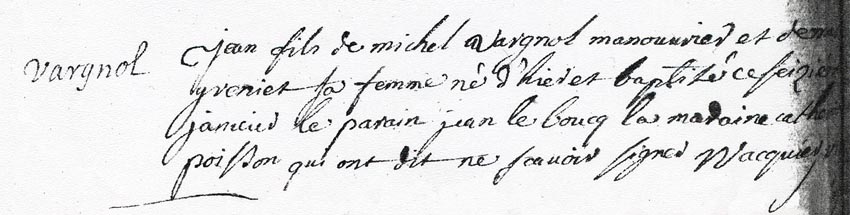 vargnol
Jean fils de michel Vargnol manouvrier et de
greniet sa femme né d'hier et baptisé ce seizie
janvier le parain jean le boucq la maraine cathe
poisson qui ont dit ne scavoir signer Wacquier